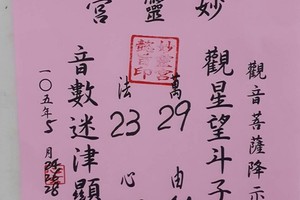 妙靈宮
觀音菩薩降示
觀星望斗子
萬29由
法23心
音數迷津顯
一〇五年5月